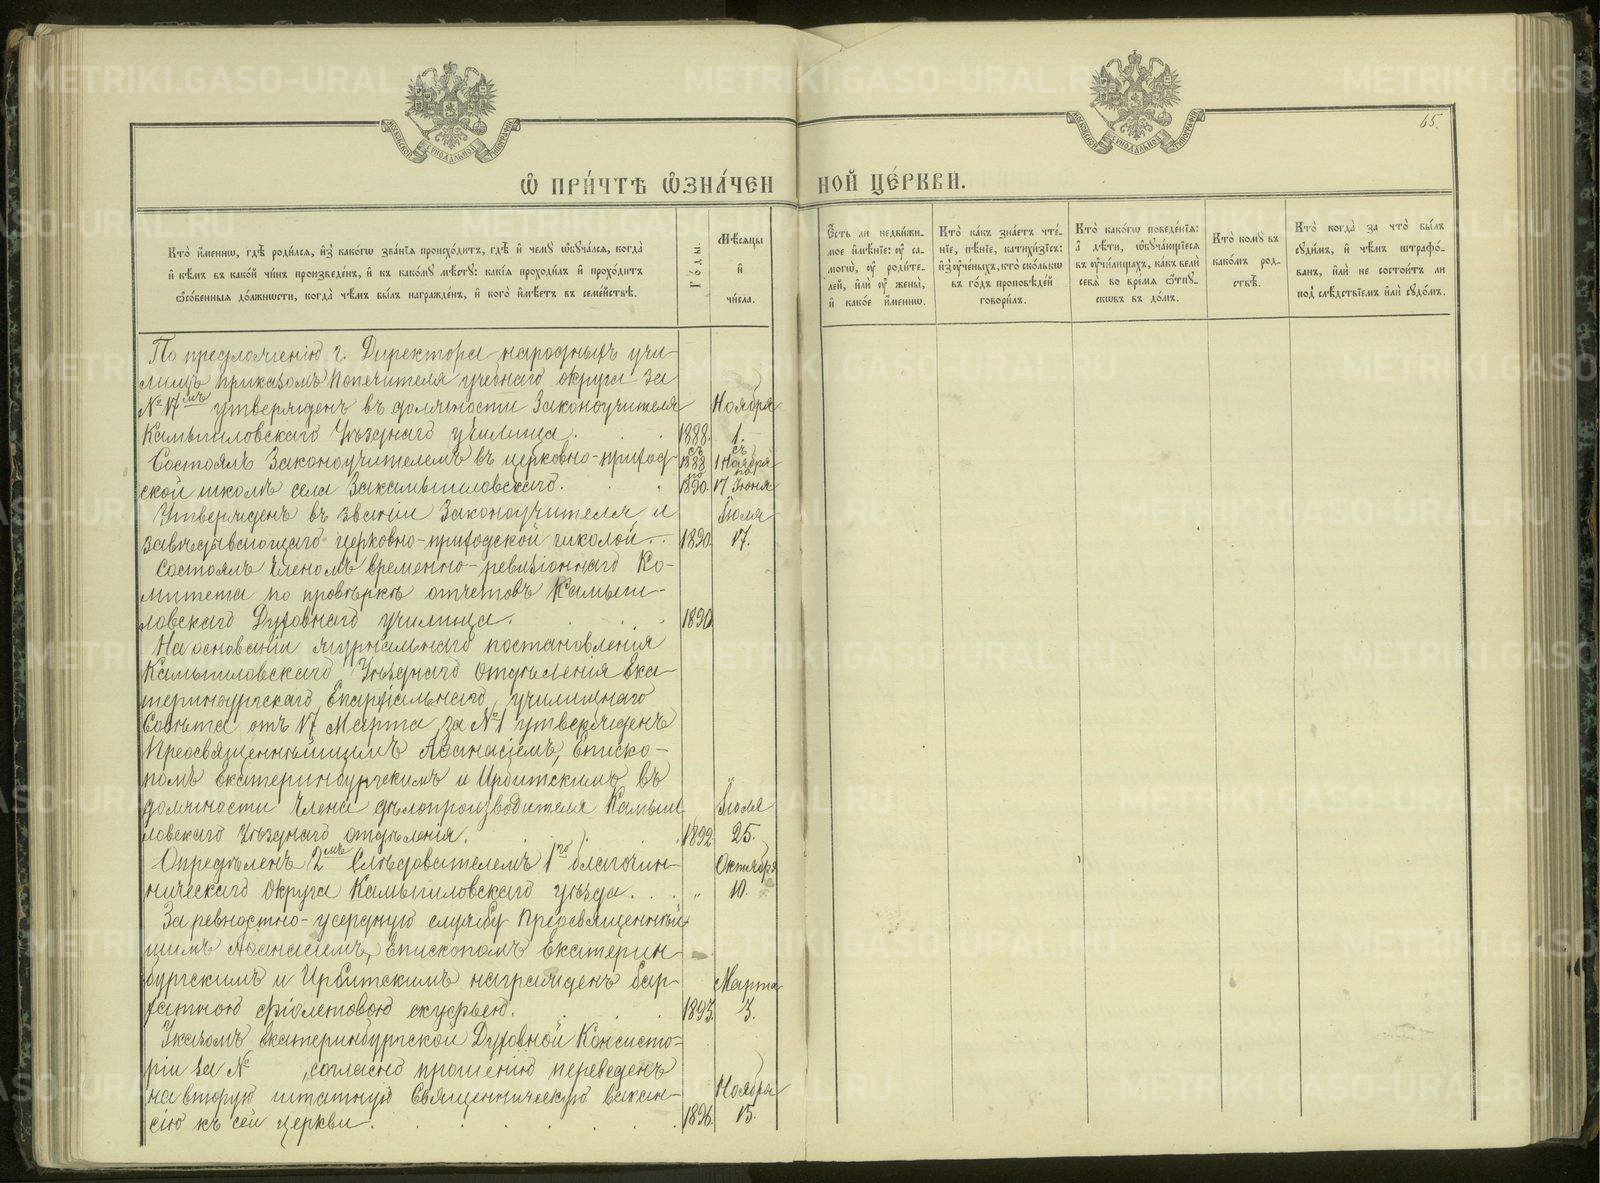 65.
Ѡ ПРИ́ЧТѢ ѠЗНА́ЧЕН
НОЙ ЦЕ́РКВИ.
Кто̀ и҆́менно, гдѣ̀ роди́лся, и҆з̾ како́гѡ зва́нїя происхо́дитъ, гдѣ̀ и҆ чемꙋ̀ ѡ҆бꙋча́лся, когда̀
и҆ кѣ́мъ въ како́й чи́нъ произведе́нъ, и҆ къ како́мꙋ мѣ́стꙋ; какі̑я проходи́лъ и҆ прохо́дитъ
ѻ҆со́бенныя до́лжности, когда̀ чѣ́мъ бы́лъ награжде́нъ, и҆ кого̀ и҆мѣ́етъ въ семе́йствѣ.
Го́ды.
Мѣ́сяцы
и҆
чи́сла.
Є҆́сть ли недви́жи-
мое и҆мѣ́нїе: ᲂу҆ са-
могѡ̀, ᲂу҆ роди́те-
лей, и҆лѝ ᲂу҆ жены̀,
и҆ како́е и҆́менно.
Кто̀ ка́къ зна́етъ чте́-
нїе, пѣ́нїе, катихи́зїсъ;
и҆з̾ ᲂу҆че́ныхъ, кто̀ ско́лькѡ
въ го́дъ проповѣ́дей
говори́лъ.
Кто̀ како́гѡ поведе́нїя:
а҆ дѣ́ти, ѡ҆бꙋча́ющїеся
въ ᲂу҆чи́лищахъ, ка́къ велѝ
себя̀ во вре́мя ѿпꙋ-
скѡвъ въ до́мъ.
Кто̀ комꙋ̀ въ
како́мъ род-
ствѣ̀.
Кто̀ когда̀ за что̀ бы́лъ
сꙋди́мъ, и҆ чѣ́мъ штрафо́-
ванъ, и҆лѝ не состои́тъ ли
под̾ слѣ́дствїемъ и҆лѝ сꙋдо́мъ.
По предложенію г. Директора народныхъ учи-
лищъ приказомъ Попечителя учебнаго округа за
№ 17мъ утвержденъ въ должности Законоучителя Ноября
Камышловскаго Уѣзднаго училища. 1888. 1.
Состоялъ Законоучителемъ въ церковно-приход- съ 1888 съ 1 Ноября
ской школѣ села Закамышловскаго. по 1890. по 17 Іюня
Утвержденъ въ званіи Законоучителя и Іюля
завѣдывающаго церковно-приходской школой. 1890. 17.
Состоялъ Членомъ временно-ревизіоннаго Ко-
митета по провѣркѣ отчетовъ Камыш-
ловскаго Духовнаго училища. 1890
На основаніи журнальнаго постановленія
Камышловскаго Уѣзднаго отдѣленія Ека-
теринбургскаго Епархіальнаго училищнаго
Совѣта отъ 17 Марта за №1 утвержденъ
Преосвященнѣйшимъ Аѳанасіемъ, Еписко-
помъ Екатеринбургскимъ и Ирбитскимъ въ
должности Члена дѣлопроизводителя Камыш- Іюля
ловскаго Уѣзднаго отдѣленія. 1892 25.
Опредѣленъ 2мъ Слѣдователемъ 1го благочин- Октября
ническаго округа Камышловскаго уѣзда. „ 10.
За ревностно-усердную службу Преосвященнѣй-
шимъ Аѳанасіемъ, Епископомъ Екатерин-
бургскимъ и Ирбитскимъ награжденъ бар- Марта
хатною фіолетовою скуфьею. 1893. 3.
Указомъ Екатеринбургской Духовной Консисто-
ріи за № , согласно прошенію переведенъ
на вторую штатную Священническую вакан- Ноября
сію къ сей церкви. 1896. 15.